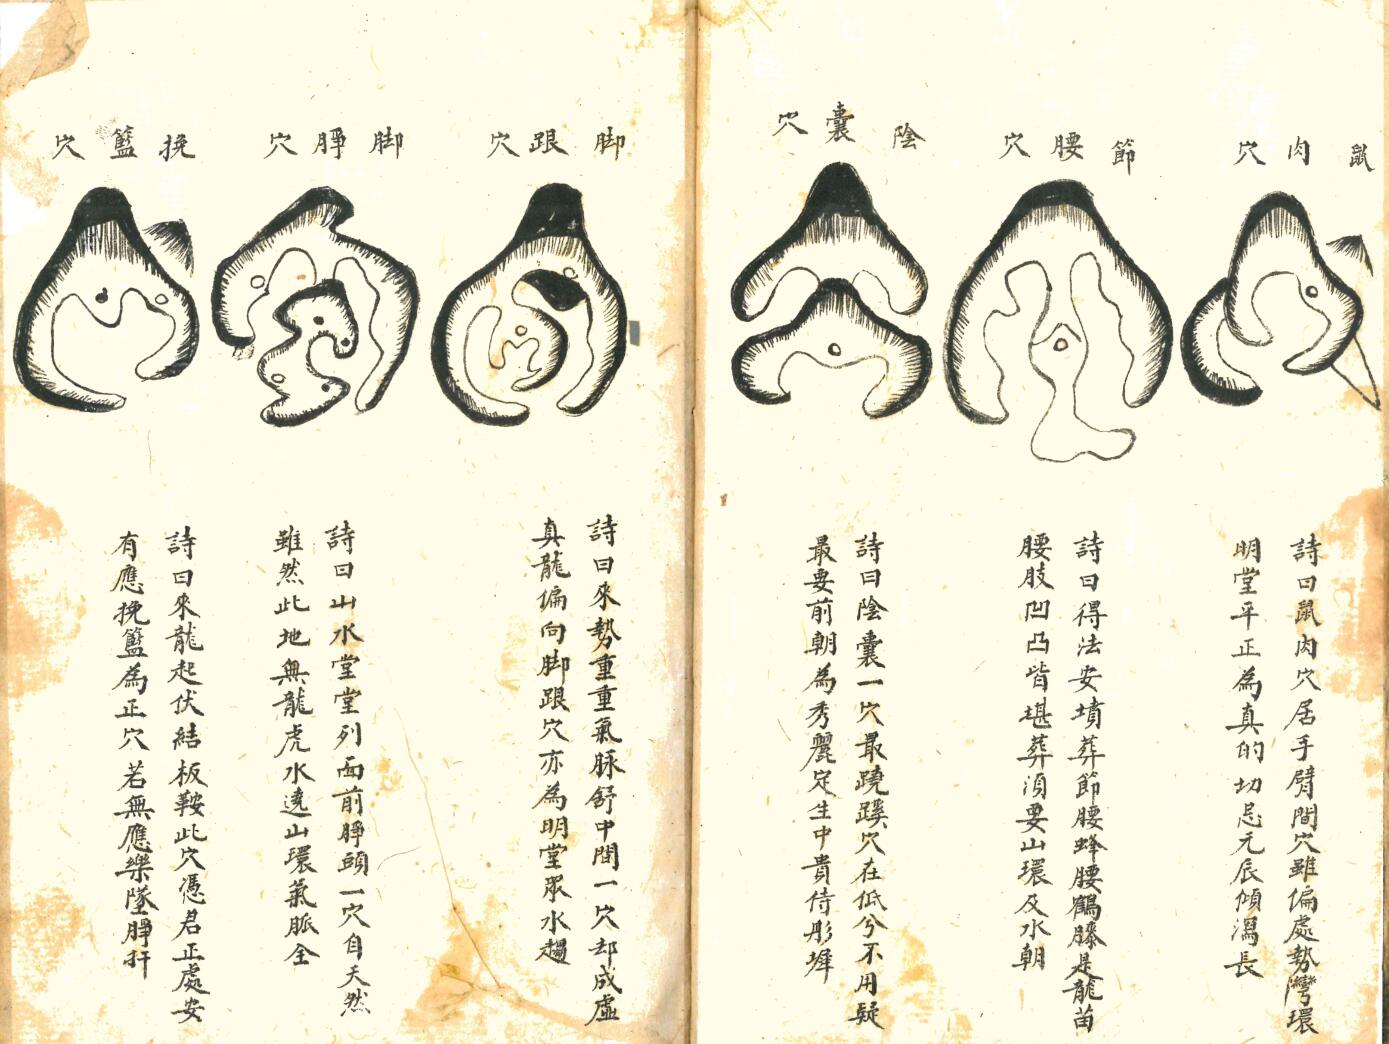 鼠肉穴
詩曰鼠肉穴居手臂間穴雖偏處勢灣環
明堂平正為真的切忌元辰傾瀉長
節腰穴
詩曰得法安墳葬節腰蜂腰鶴膝是龍苗
腰肢凹凸皆堪葬湏要山環及水朝
陰囊穴
詩曰陰囊一穴最蹺蹊穴在低兮不用疑
最要前朝為秀麗定生中貴侍彤墀
脚跟穴
詩曰來勢重重氣脉舒中間一穴却成虛
真龍偏向脚跟穴亦為明堂眾水趨
脚脝穴
詩曰山水堂堂列面前脝頭一穴自天然
雖然此地無龍虎水遶山環氣脈全
挽籃穴
詩曰來龍起伏結板鞍此穴憑君正處安
有應挽籃為正穴若無應樂墜脝扦